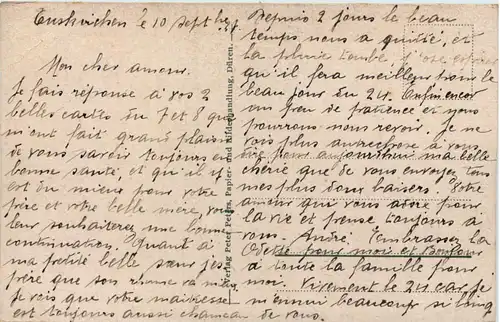 Euskirchen le 10 Septbre
Mon cher amour.
Je fais réponse à vos 2
belles cartes du 7 et 8 que
m'ont fait grand plaisir
de vous savoir toujours en
bonne santé, et qu'il en
est du mieux pour votre
frère et votre belle mère, vous
leur souhaiterez une bonne
continuation. Quant à
ma petite belle sœur j'es
père que son rhume va mieux
Je vois que votre maitresse
est toujours aussi chameau de vous.
Verlag Peter Peters, Papier- und Bilderhandlung, Düren.
Depuis 2 jours le beau
temps nous a quitté, et
la pluie tombe. j'ose espérer
qu'il fera meilleur pour le
beau jour du 24. Enfin encor
un peu de patience et nous
pourrons nous revoir. Je ne
vois plus autre chose à vous
dire pour aujourd'hui ma belle
chérie que de vous envoyer tous
mes plus doux baisers. Votre
amour qui vous adore pour
la vie et pense toujours à
vous. André. Embrassez la
Odette pour moi et bonjour
à toute la famille pour
moi. Vivement le 24 car je
m'ennui beaucoup si long